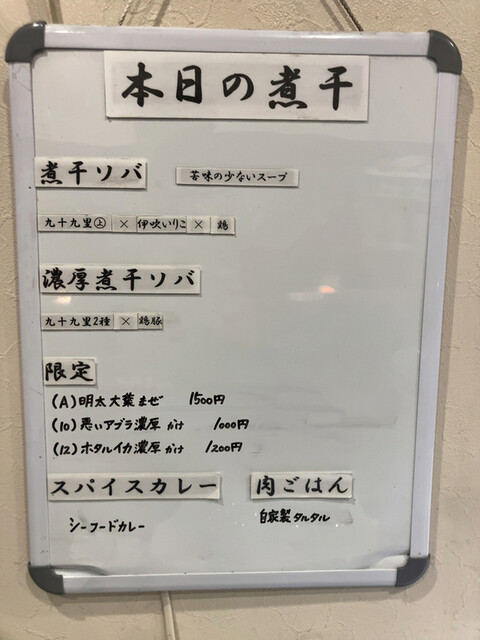 本日の煮干
煮干ソバ 苦味の少ないスープ
九十九里㊤ × 伊吹いりこ × 鶏
濃厚煮干ソバ
九十九里2種 × 鶏豚
限定
(A) 明太大葉まぜ 1500円
(10) 悪いアブラ濃厚かけ 1000円
(12) ホタルイカ濃厚かけ 1200円
スパイスカレー 肉ごはん
シーフードカレー 自家製タルタル